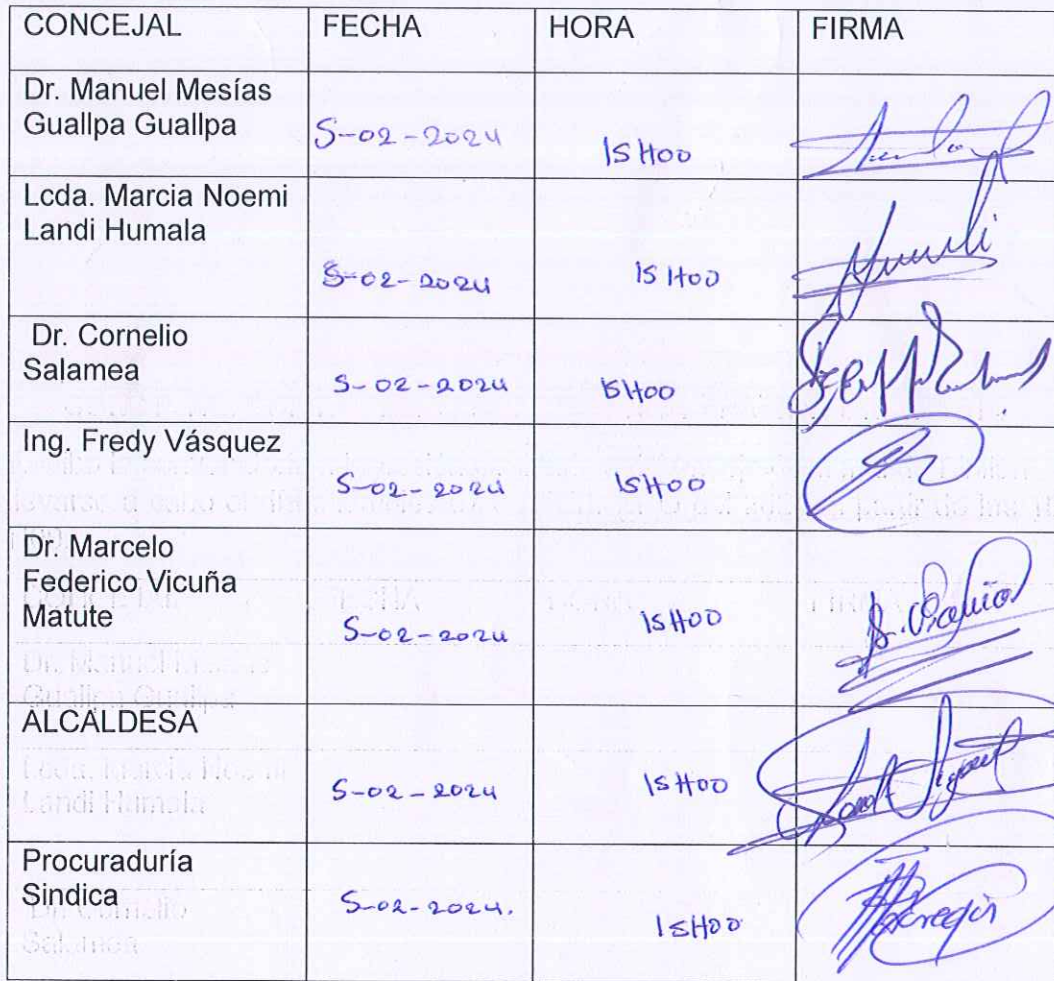 CONCEJAL FECHA HORA FIRMA
Dr. Manuel Mesías
Guallpa Guallpa 5-02-2024 15H00
Lcda. Marcia Noemi
Landi Humala
5-02-2024 15H00
Dr. Cornelio
Salamea 5-02-2024 15H00
Ing. Fredy Vásquez
5-02-2024 15H00
Dr. Marcelo
Federico Vicuña
Matute 5-02-2024 15H00
ALCALDESA
5-02-2024 15H00
Procuraduría
Sindica 5-02-2024. 15H00